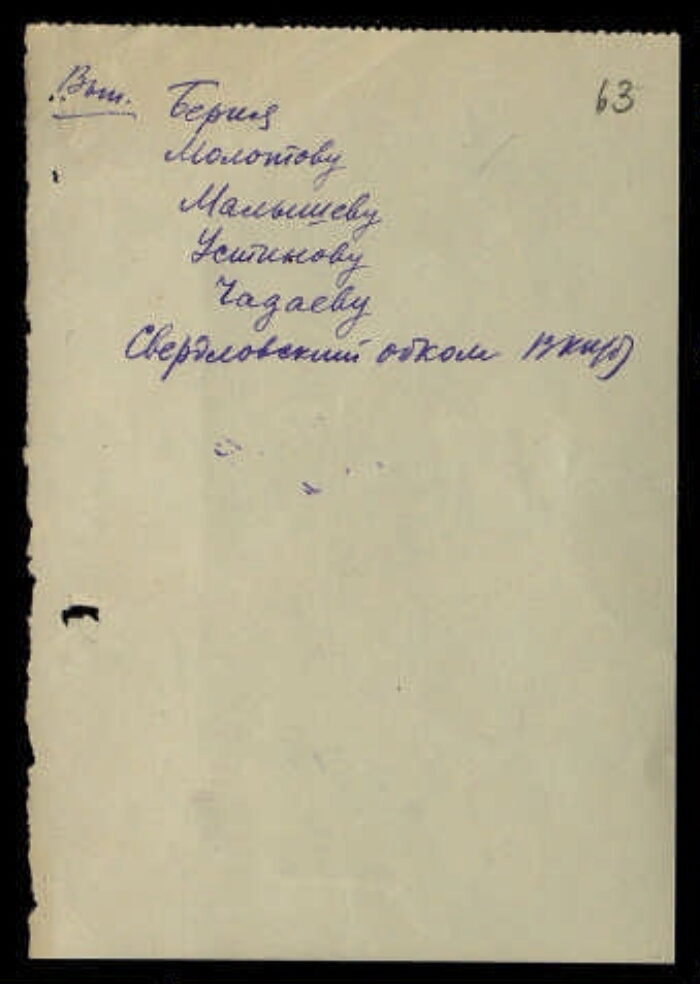 63
Вып. Берия
Молотову
Малышеву
Устинову
Чадаеву
Свердловский обком ВКП(б)